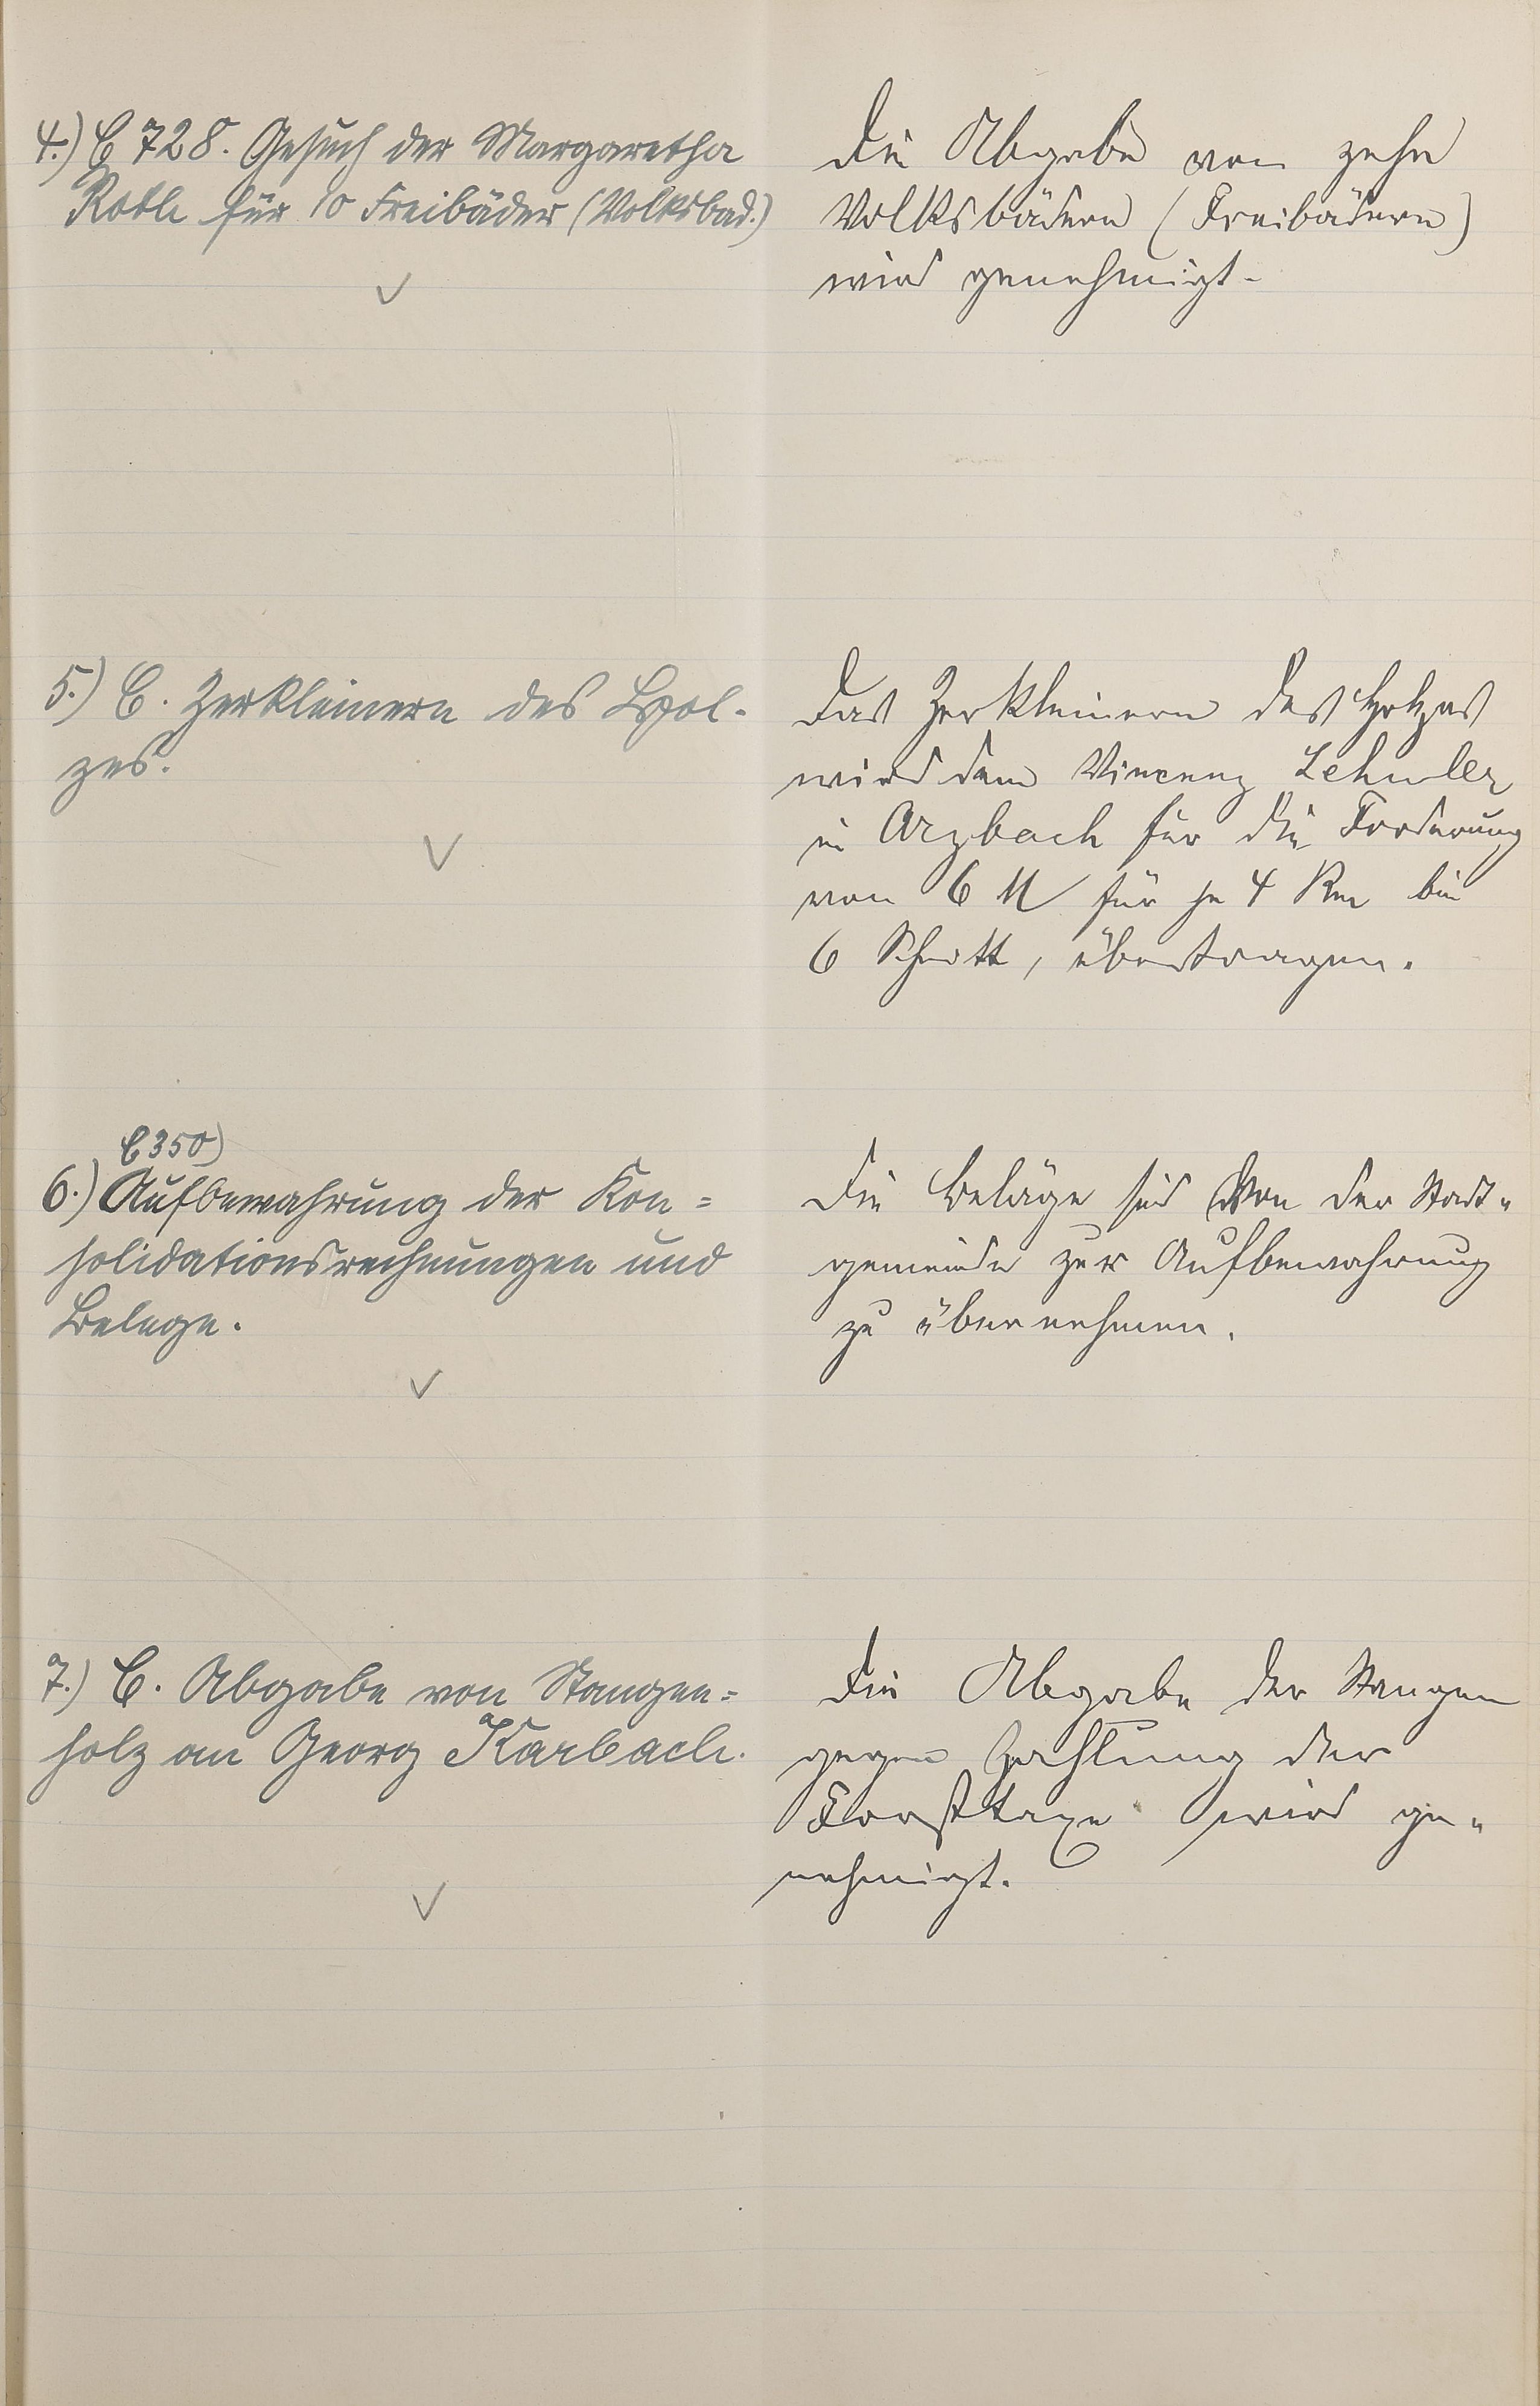 4.) C 728. Gesuch der Margaretha
Roth für 10 Freibäder (Volksbad.)
Die Abgabe von zehn
Volksbädern (Freibädern)
wird genehmigt.
5.) C. Zerkleinern des Hol-
zes.
Das Zerkleinern des Holzes
wird dem Vincenz
in Arzbach für die Forderung
von 6 M für je 4 Rm bei
6 Schnitt, übertragen.
C 350)
6.) Aufbewahrung der Kon=
solidationsrechnungen und
Belege.
Die Beläge sind von der Stadt-
gemeinde zur Aufbewahrung
zu übernehmen.
7.) C. Abgabe von Stangen=
holz an Georg Karbach.
Die Abgabe der Stangen
gegen Zahlung der
Forsttaxe wird ge-
nehmigt.